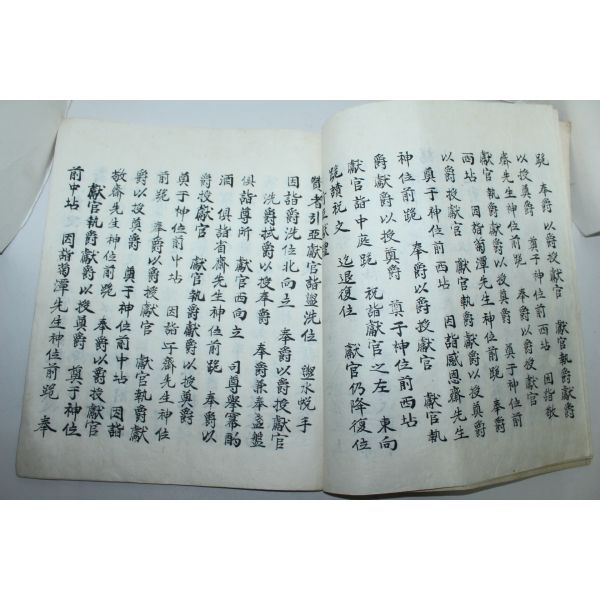 跪 奉爵以爵授獻官 獻官執爵獻爵
以授奠爵 奠于神位前西坫 因詣敬
齋先生神位前跪 奉爵以爵授獻官
獻官執爵獻爵以授奠爵 奠于神位前
西坫 因詣菊潭先生神位前跪 奉爵
以爵授獻官 獻官執爵獻爵以授奠爵
奠于神位前西坫 因詣感恩齋先生
神位前跪 奉爵以爵授獻官 獻官執
爵獻爵以授奠爵 奠于神位前西坫
獻官詣中庭跪 祝詣獻官之左 東向
跪讀祝文 迄退復位 獻官仍降復位
行亞獻禮
贊者引亞獻官詣盥洗位 盥水帨手
因詣爵洗位北向立 奉爵以爵授獻官
洗爵拭爵以授奉爵 奉爵兼奉盞盤
俱詣尊所 獻官西向立 司尊擧冪酌
酒 俱詣省齋先生神位前跪 奉爵以
爵授獻官 獻官執爵獻爵以授奠爵
奠于神位前中坫 因詣 齋先生神位
前跪 奉爵以爵授獻官 獻官執爵獻
爵以授奠爵 奠于神位前中坫 因詣
敬齋先生神位前跪 奉爵以爵授獻官
獻官執爵獻爵以授奠爵 奠于神位
前中坫 因詣菊潭先生神位前跪 奉